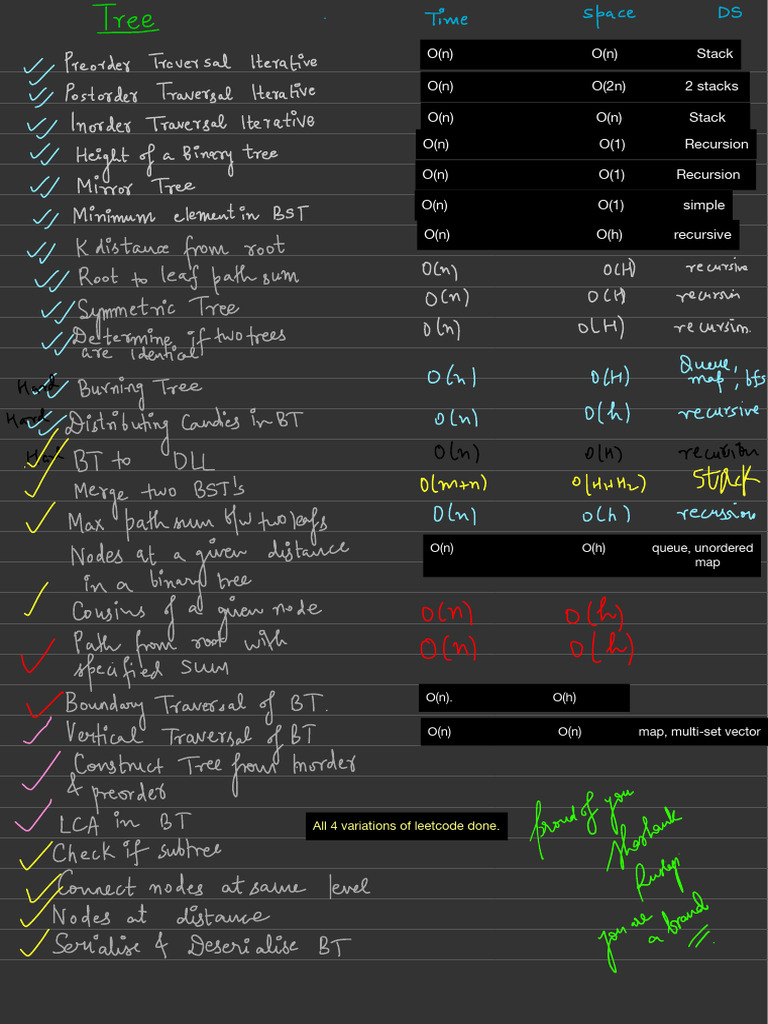 Tree Time space DS
Preorder Traversal Iterative O(n) O(n) Stack
Postorder Traversal Iterative O(n) O(2n) 2 stacks
Inorder Traversal Iterative O(n) O(n) Stack
Height of a Binary tree O(n) O(1) Recursion
Mirror Tree O(n) O(1) Recursion
Minimum element in BST O(n) O(1) simple
K distance from root O(n) O(h) recursive
Root to leaf path sum O(n) O(H) recursive
Symmetric Tree O(n) O(H) recursion
Determine if two trees O(n) O(H) recursion
are idential
Hard Burning Tree O(n) O(H) Queue,
map, bfs
Hard Distributing Candies in BT O(n) O(h) recursive
Hard BT to DLL O(n) O(H) recursion
Merge two BST's O(m+n) O(H1+H2) Stack
Max path sum b/w two leafs O(n) O(h) recursion
Nodes at a given distance O(n) O(h) queue, unordered
map
in a binary tree
Cousins of a given node O(n) O(h)
Path from root with O(n) O(h)
specified sum
Boundary Traversal of BT. O(n). O(h)
Vertical Traversal of BT O(n) O(n) map, multi-set vector
Construct Tree from Inorder
& preorder
LCA in BT All 4 variations of leetcode done.
Check if subtree
Connect nodes at same level
Nodes at distance
Serialise & Deserialise BT
Proud of you
Shashank
you are
a brand